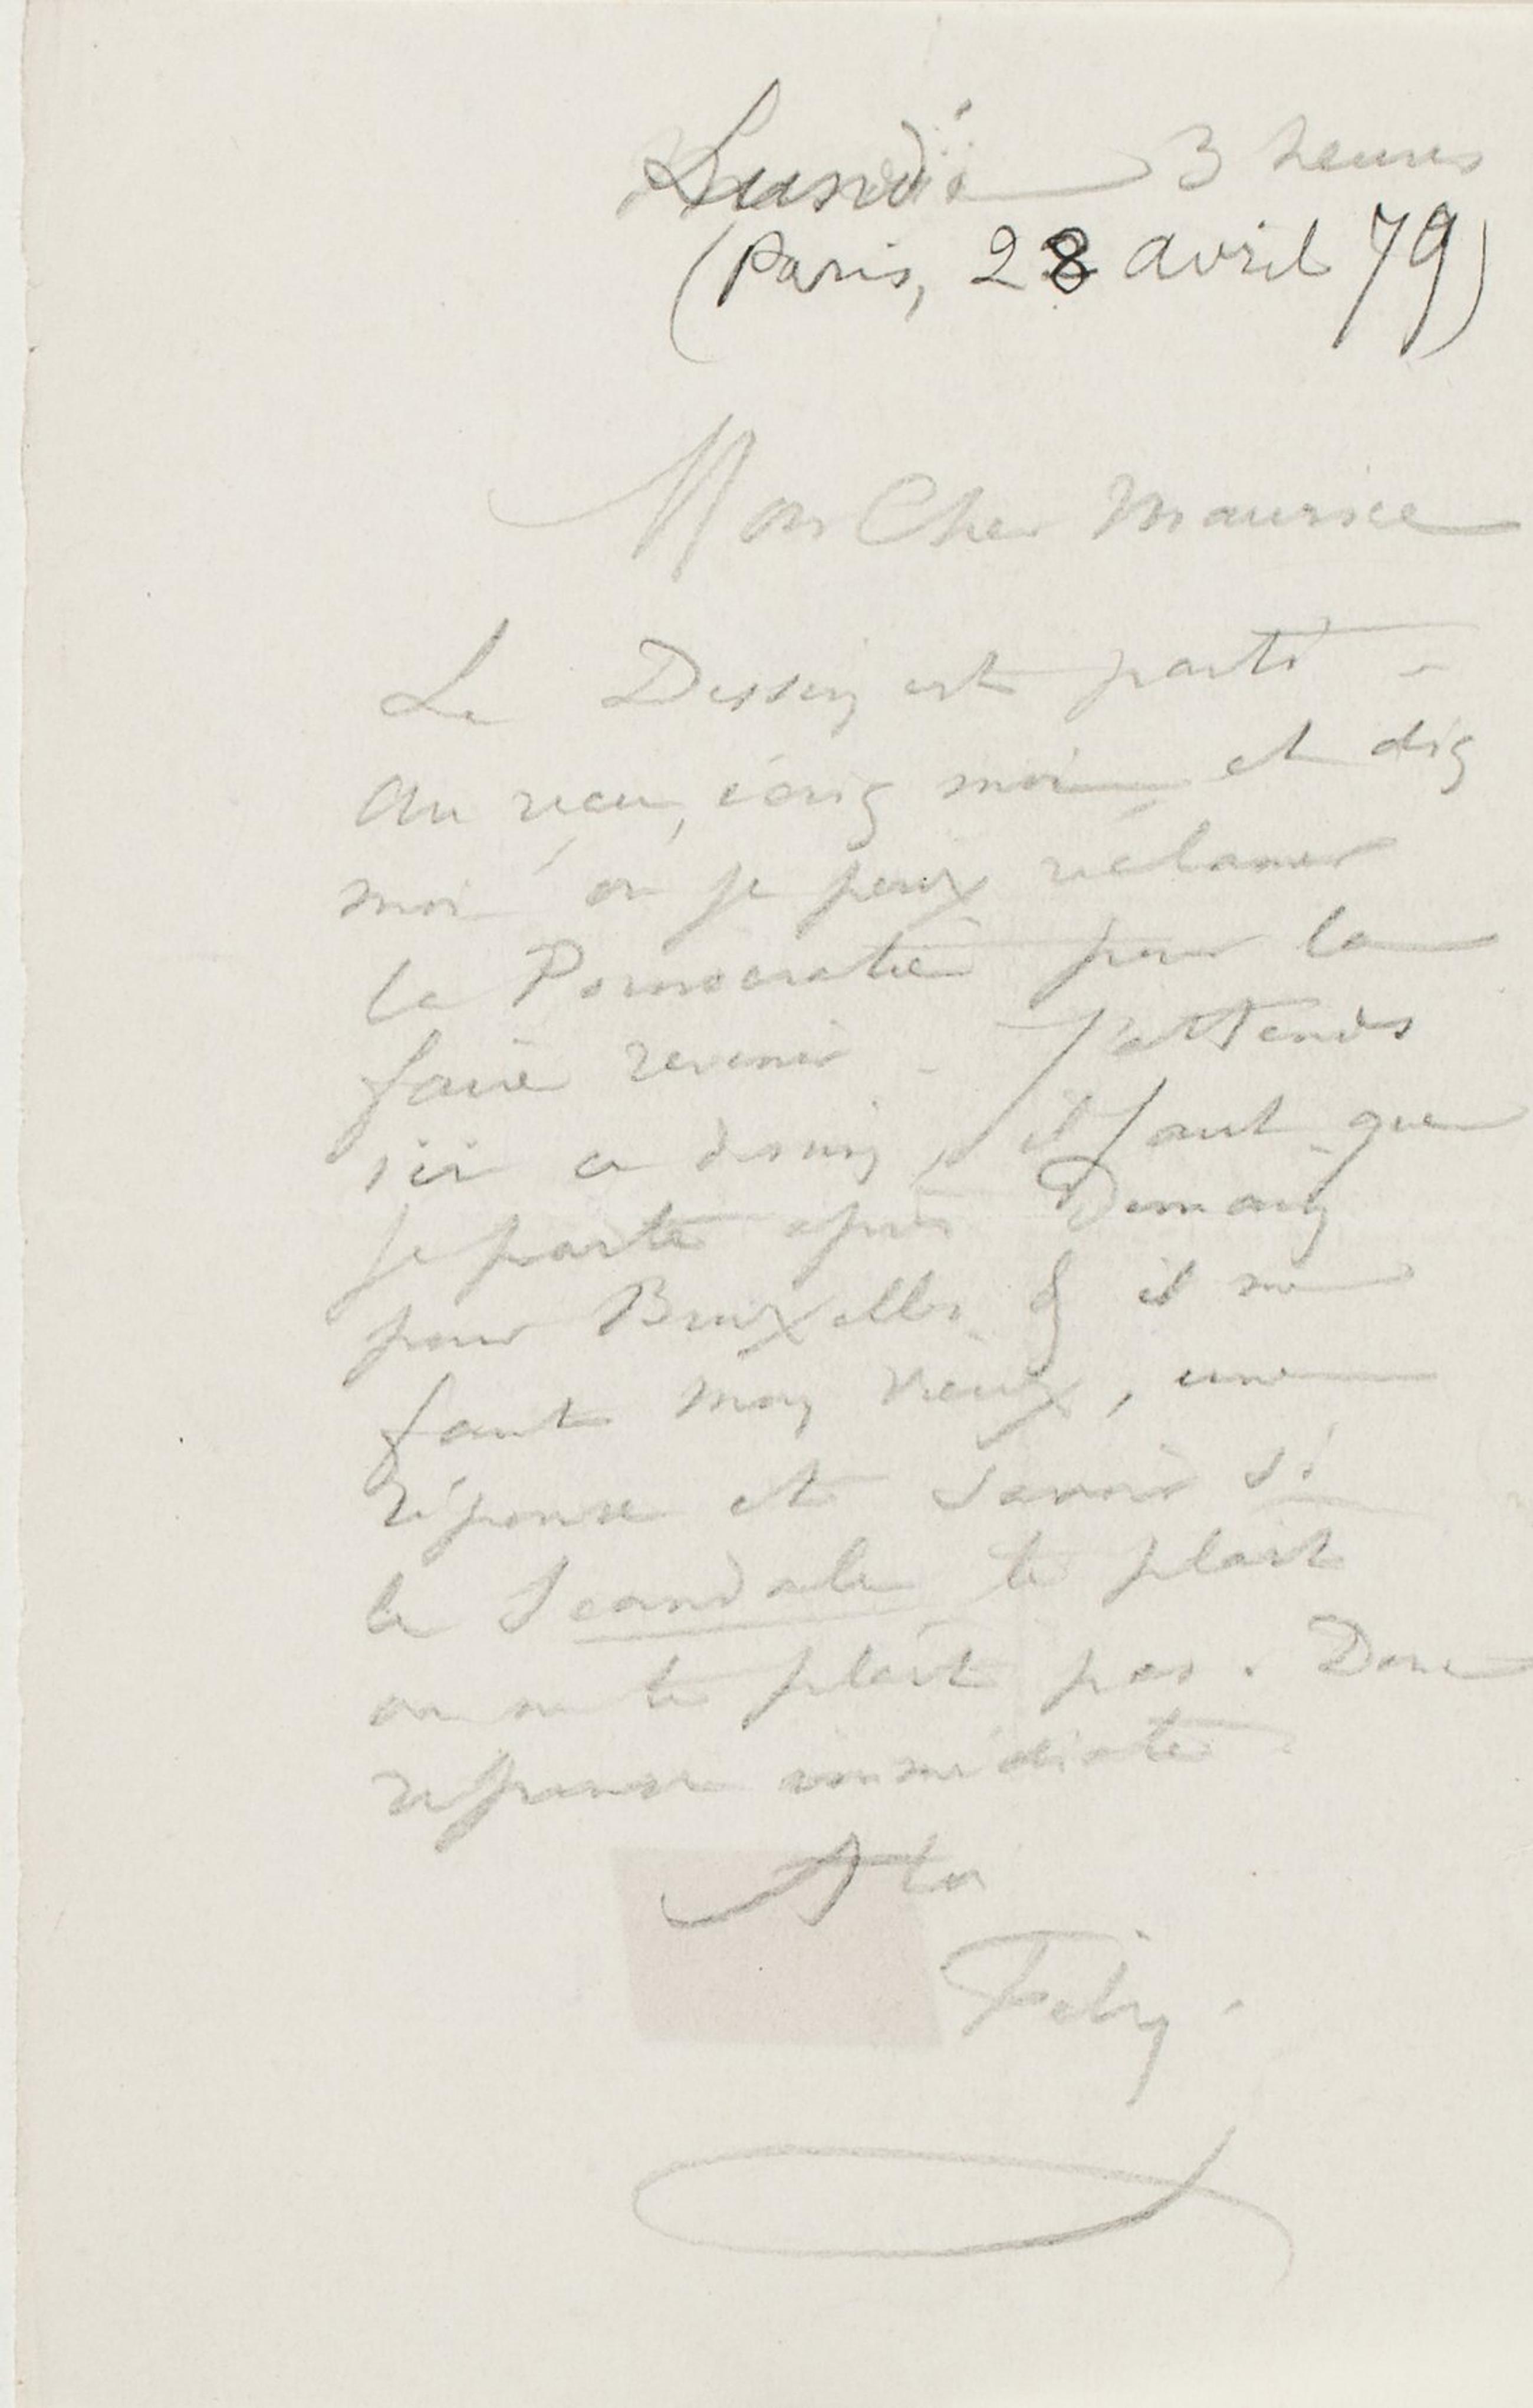 Lundi 3 heures
(Paris, 28 avril 79)
Mon Cher Maurice
Le Dessin est parti –
Au reçu, écris moi et dis
moi où je peux réclamer
la Pornocratie pour la
faire revenir – J'attends
ici ce dessin, il faut que
je parte après Demain
pour Bruxelles & il me
faut mon vieux, une
réponse et savoir si
le Scandale te plait
ou ne te plaît pas. Donc
réponse immédiate.
A toi
Fély.